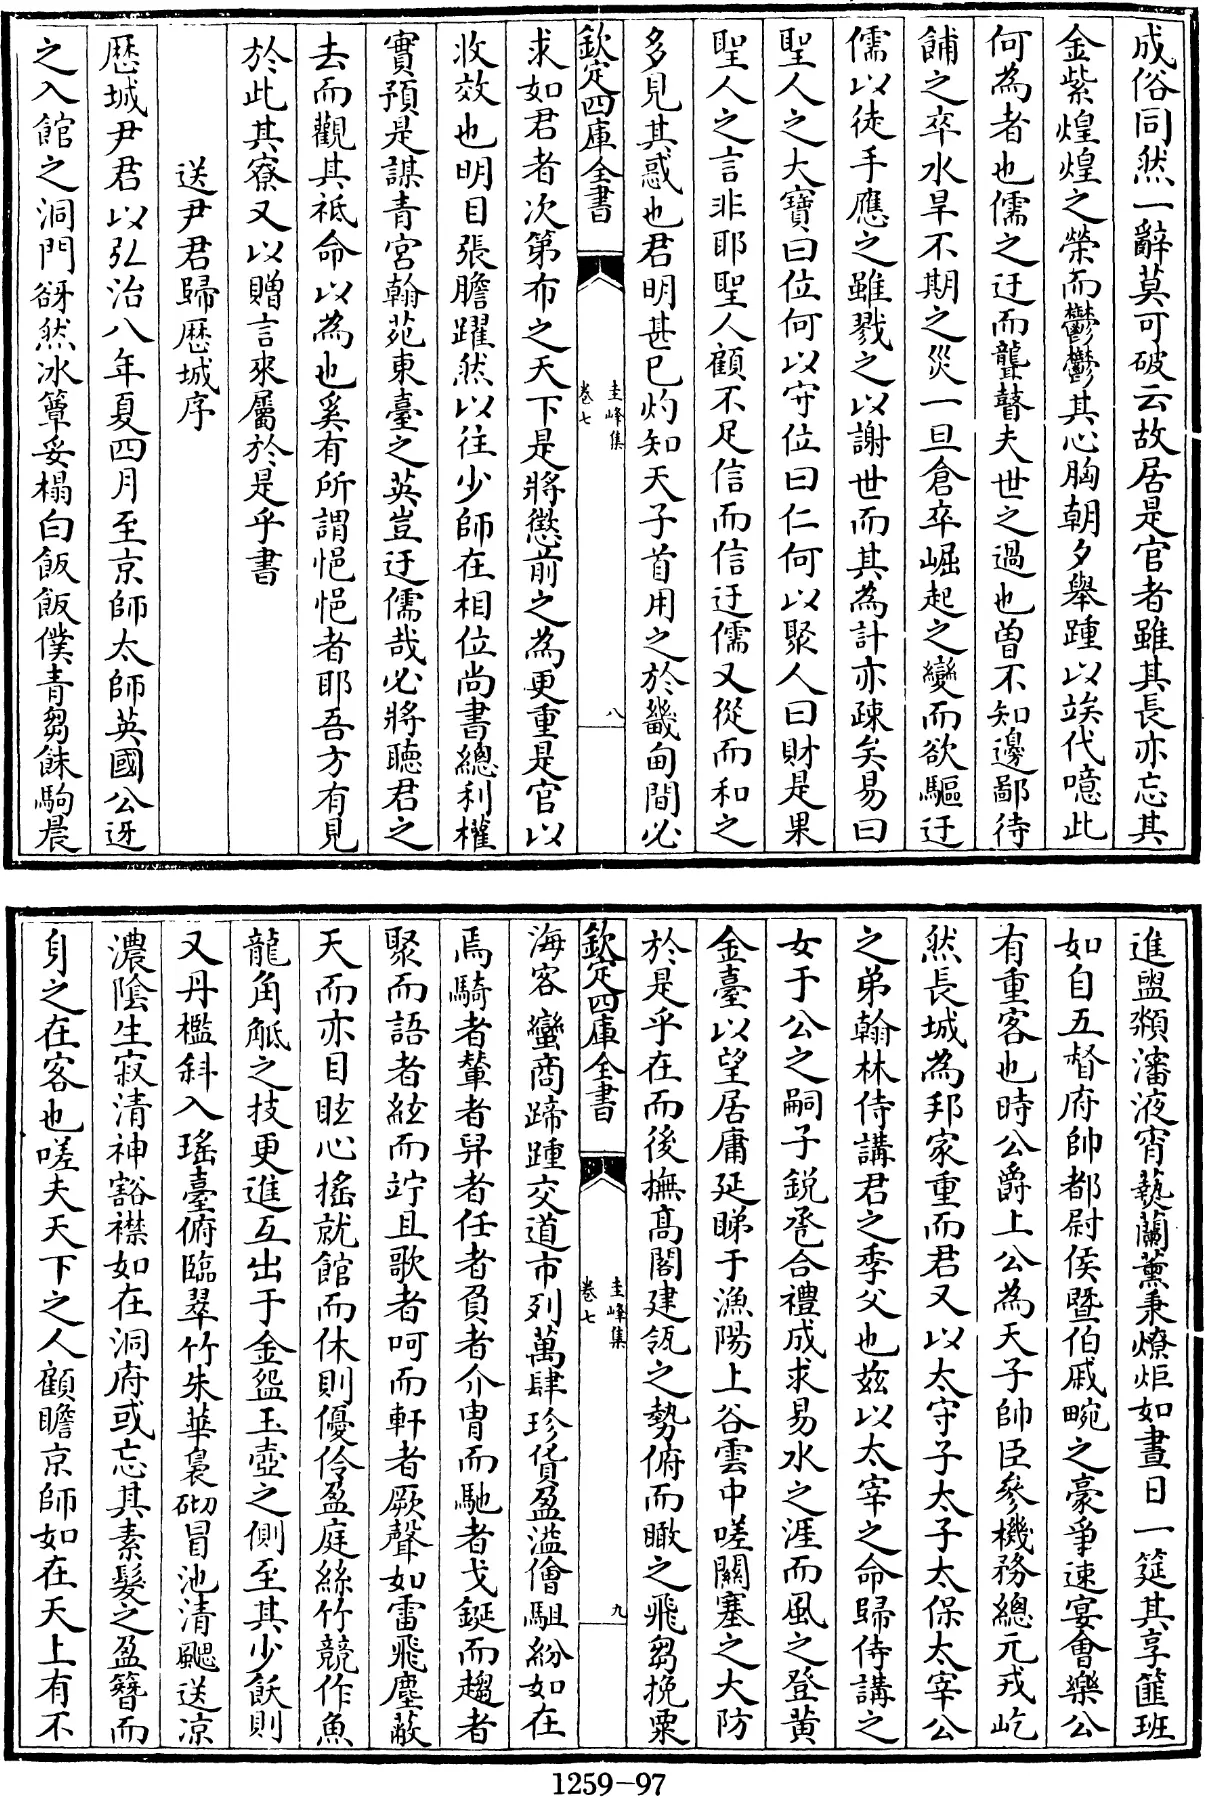 成俗同然一辭莫可破云故居是官者雖其長亦忘其
金紫煌煌之榮而鬱鬱其心胸朝夕舉踵以竢代噫此
何為者也儒之迂而聾瞽夫世之過也曽不知邊鄙待
餔之卒水旱不期之災一旦倉卒崛起之變而欲驅迂
儒以徒手應之雖戮之以謝世而其為計亦疎矣易曰
聖人之大寳曰位何以守位曰仁何以聚人曰財是果
聖人之言非耶聖人顧不足信而信迂儒又從而和之
多見其惑也君明甚已灼知天子首用之於畿甸間必
欽定四庫全書
圭峰集
卷七
八
求如君者次第布之天下是將懲前之為更重是官以
收效也明目張膽躍然以往少師在相位尚書總利權
實預是謀青宮翰苑東臺之英豈迂儒哉必將聽君之
去而觀其祗命以為也奚有所謂悒悒者耶吾方有見
於此其寮又以贈言來屬於是乎書
送尹君歸厯城序
厯城尹君以弘治八年夏四月至京師太師英國公迓
之入館之洞門谺然冰簟妥榻白飯飯僕青芻餗駒晨
進盥㶅瀋液宵爇蘭薰秉燎炬如晝日一筵其享篚班
如自五督府帥都尉侯暨伯戚畹之豪爭速宴會樂公
有重客也時公爵上公為天子帥臣參機務總元戎屹
然長城為邦家重而君又以太守子太子太保太宰公
之弟翰林侍講君之季父也茲以太宰之命歸侍講之
女于公之嗣子鋭卺合禮成求易水之涯而風之登黄
金臺以望居庸延睇于漁陽上谷雲中嗟關塞之大防
於是乎在而後撫髙閣建瓴之勢俯而瞰之飛芻挽粟
欽定四庫全書
圭峰集
卷七
九
海客蠻商蹄踵交道市列萬肆珍貨盈溢儈駔紛如在
焉騎者輦者舁者任者負者介胄而馳者戈鋋而趨者
聚而語者紘而竚且歌者呵而軒者厥聲如雷飛塵蔽
天而亦目眩心搖就館而休則優伶盈庭絲竹競作魚
龍角觝之技更進互出于金盌玉壺之側至其少飫則
又丹檻斜入瑤臺俯臨翠竹朱華裊砌冒池清颸送凉
濃陰生寂清神豁襟如在洞府或忘其素髮之盈簪而
身之在客也嗟夫天下之人顧瞻京師如在天上有不
1259-97